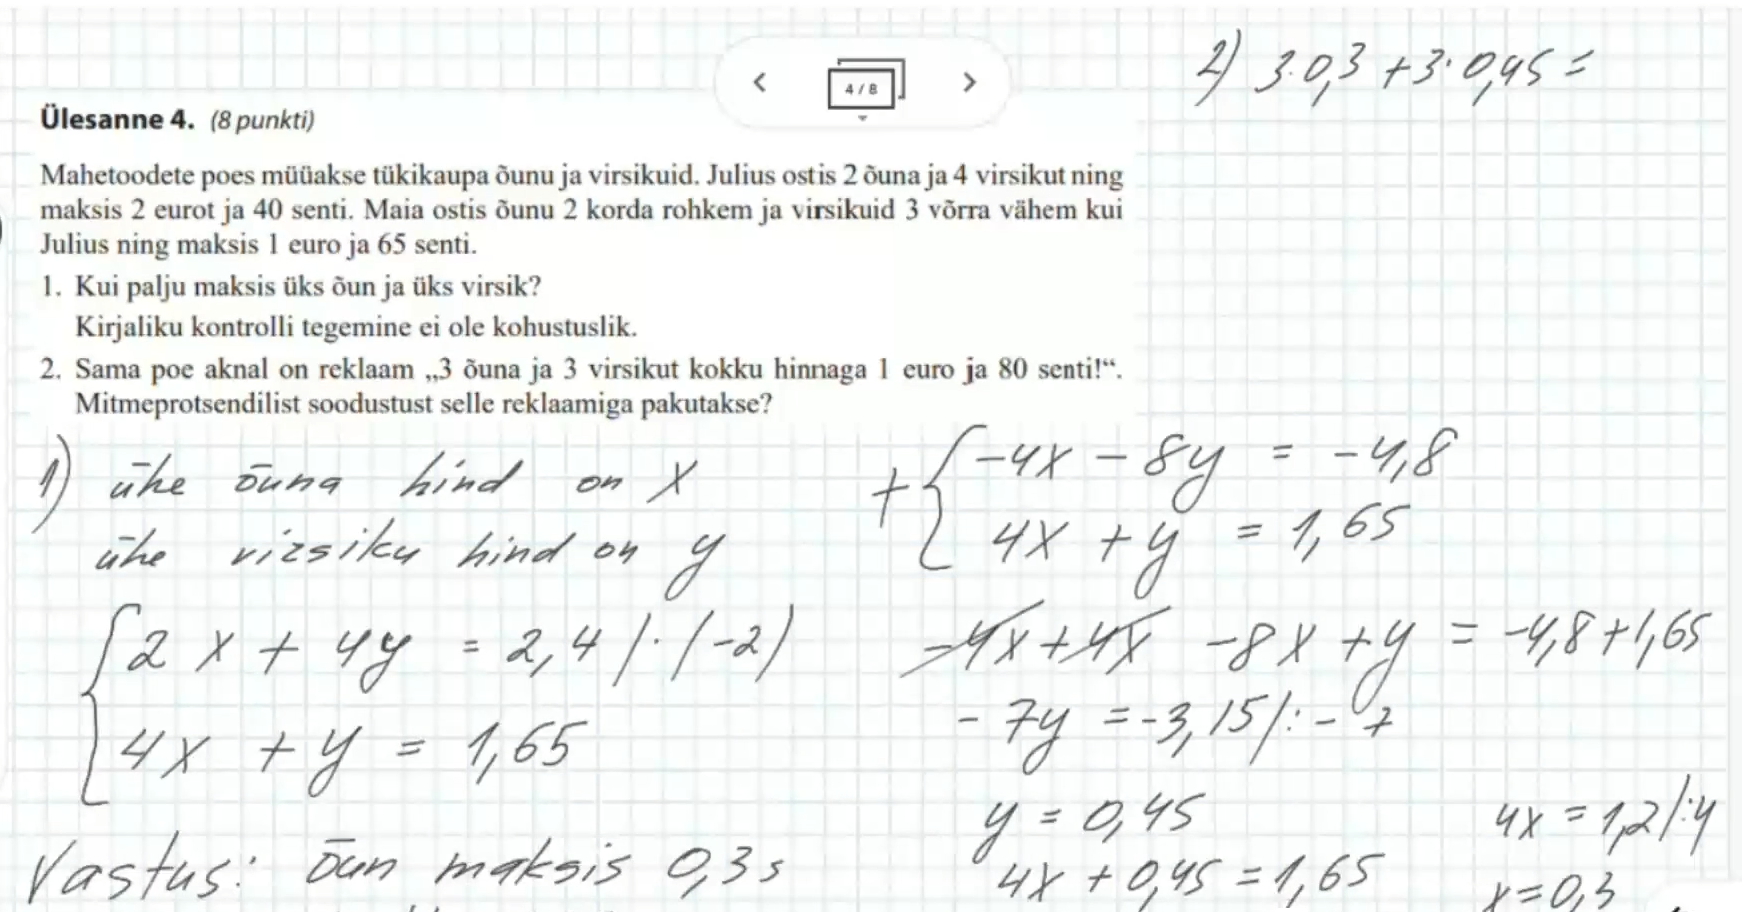 4 / 8
Ülesanne 4. (8 punkti)
Mahetoodete poes müüakse tükikaupa õunu ja virsikuid. Julius ostis 2 õuna ja 4 virsikut ning
maksis 2 eurot ja 40 senti. Maia ostis õunu 2 korda rohkem ja virsikuid 3 võrra vähem kui
Julius ning maksis 1 euro ja 65 senti.
1. Kui palju maksis üks õun ja üks virsik?
Kirjaliku kontrolli tegemine ei ole kohustuslik.
2. Sama poe aknal on reklaam „3 õuna ja 3 virsikut kokku hinnaga 1 euro ja 80 senti!“.
Mitmeprotsendilist soodustust selle reklaamiga pakutakse?
1) ühe õuna hind on x
ühe virsiku hind on y
2x + 4y = 2,4 /·(-2)
4x + y = 1,65
Vastus: õun maksis 0,3 s
+ -4x - 8y = -4,8
4x + y = 1,65
-4x + 4x - 8x + y = -4,8 + 1,65
-7y = -3,15 /: -7
y = 0,45
4x + 0,45 = 1,65
4x = 1,2 /:4
x = 0,3
2) 3·0,3 + 3·0,45 =